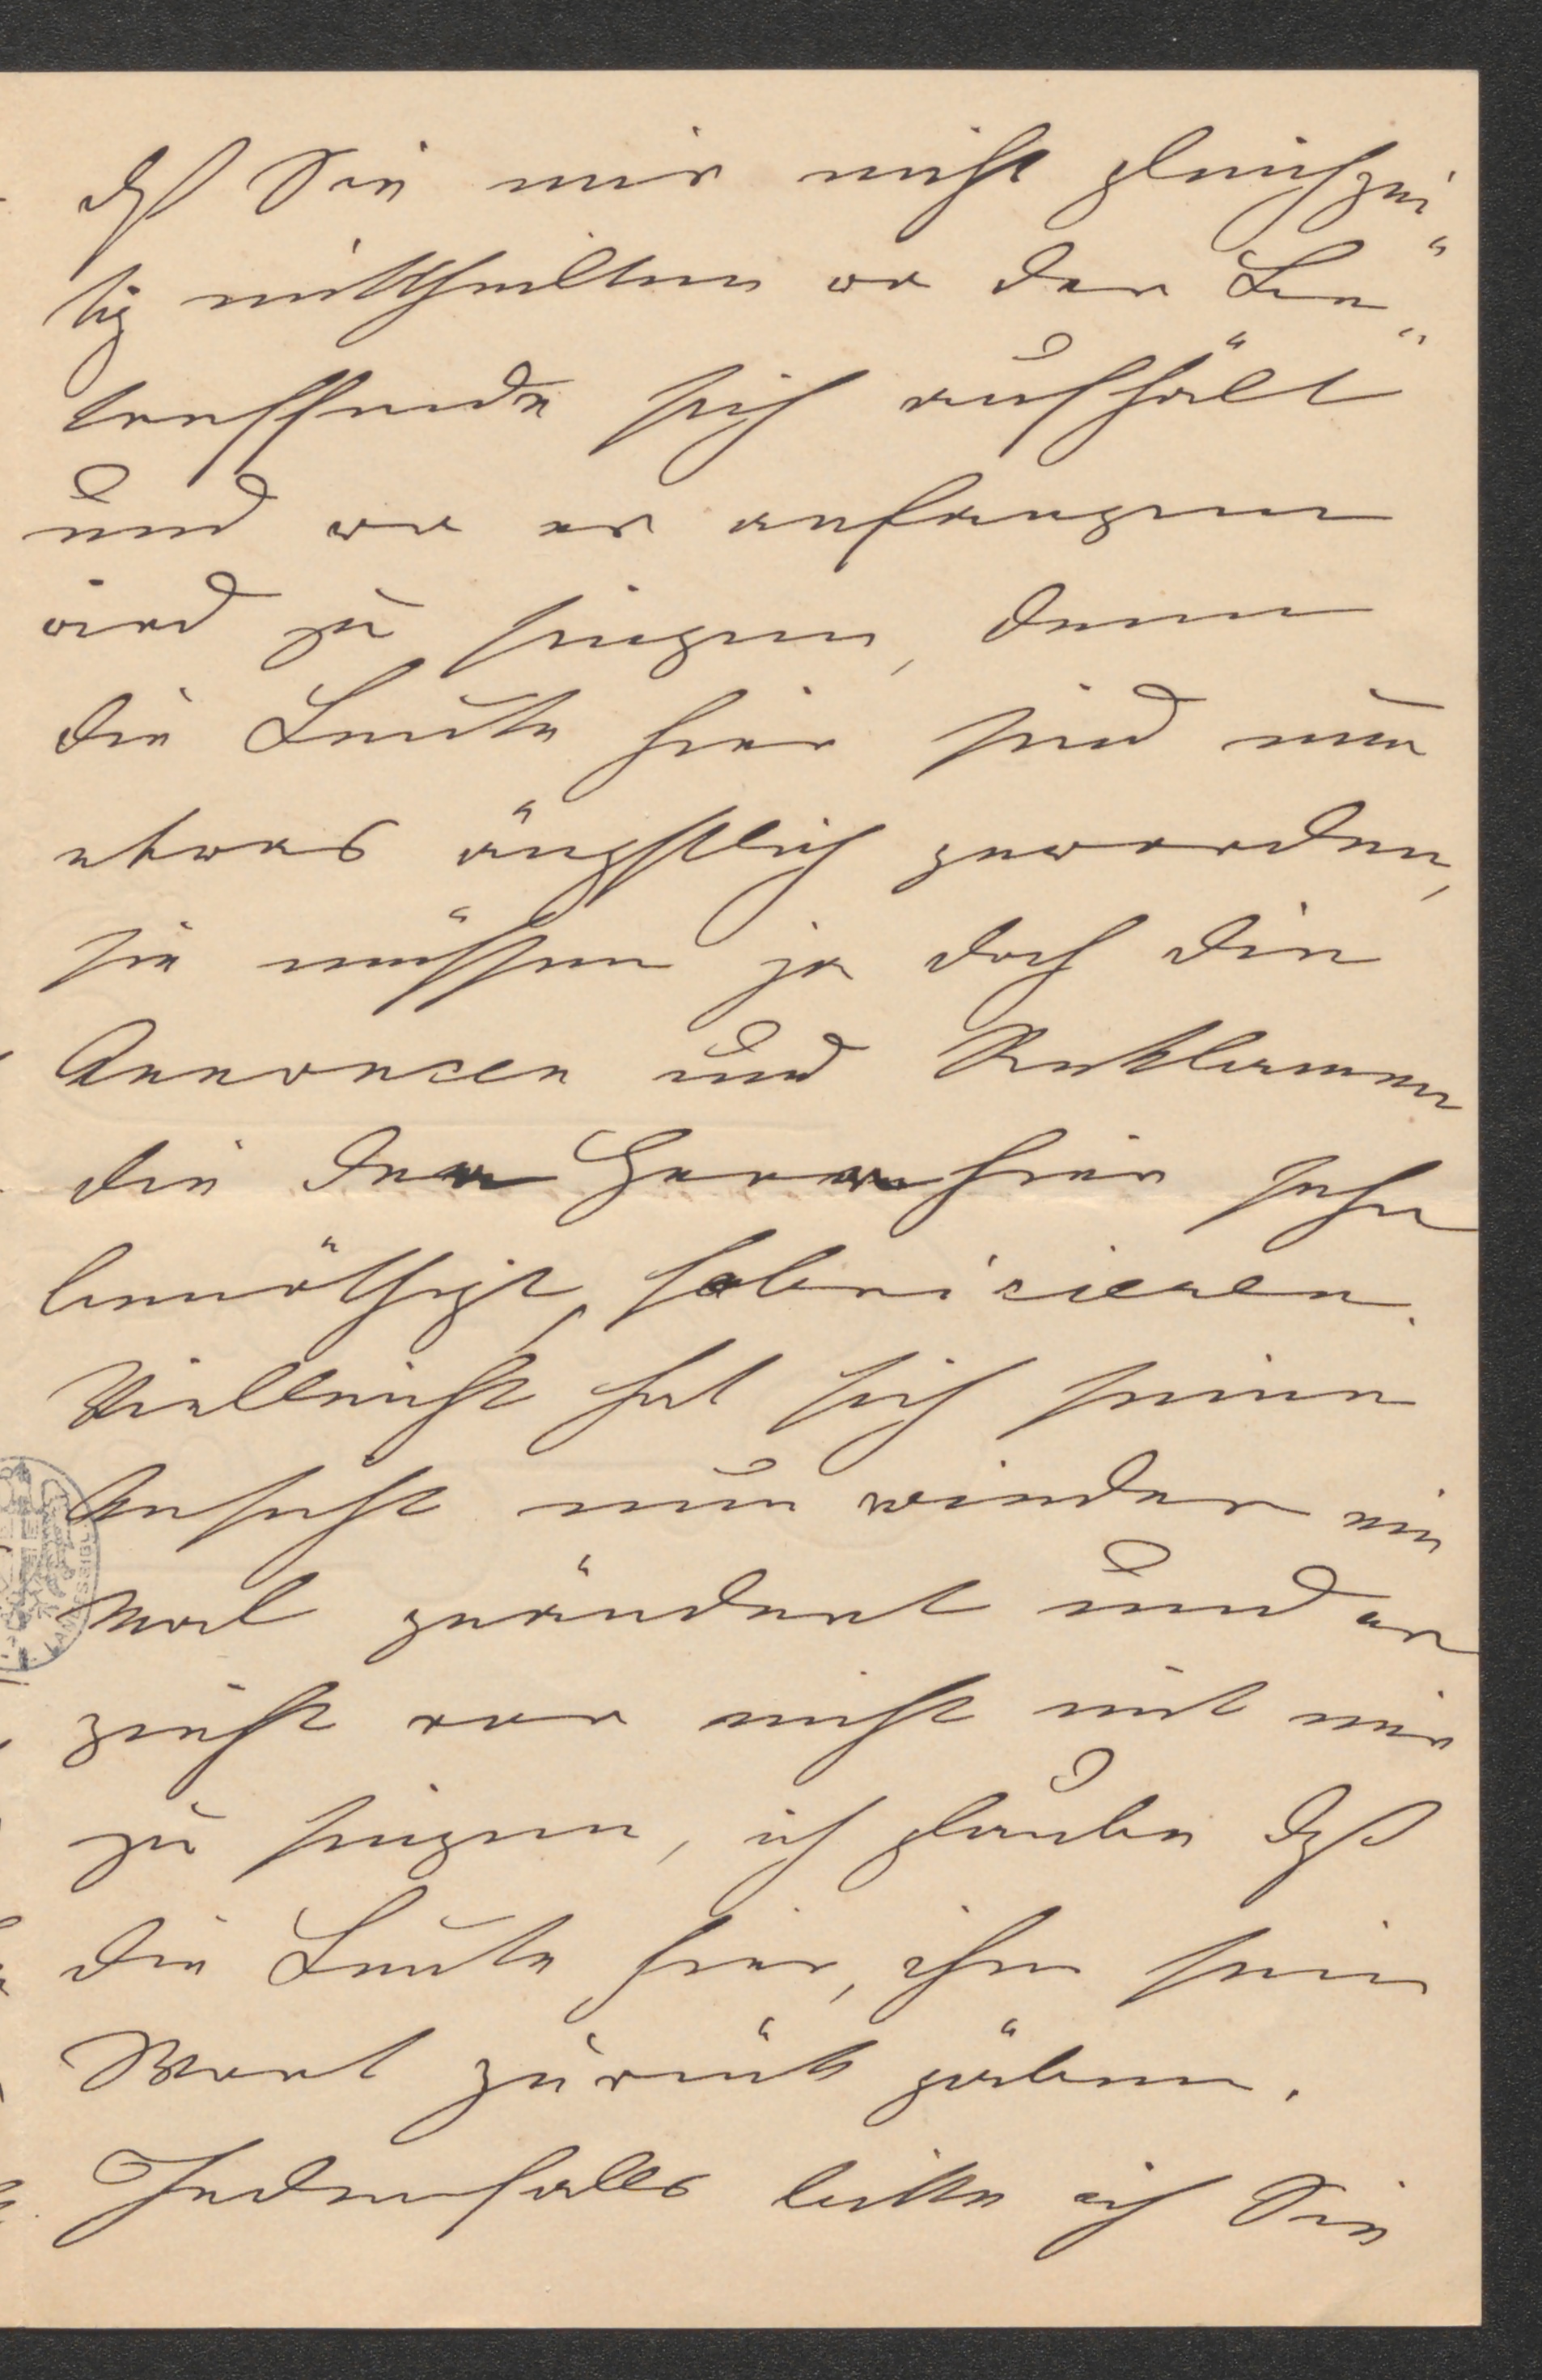 daß Sie mir nicht gleichzei„
tig mittheilten wo der Be„
treffende sich aufhält
und wo er anfangen
wird zu singen, denn
die Leute hier sind nun
etwas ängstlich geworden,
sie müssen ja doch die
Annoncen und Reklamen
die der Herr hier sehr
benöthigt, fabricieren.
Vielleicht hat sich seine
Ansicht nun wieder ein
mal geändert und er
zieht vor nicht mit mir
zu singen, ich glaube daß
die Leute hier, ihm sein
Wort zurück gäben.
Jedenfalls bitte ich Sie